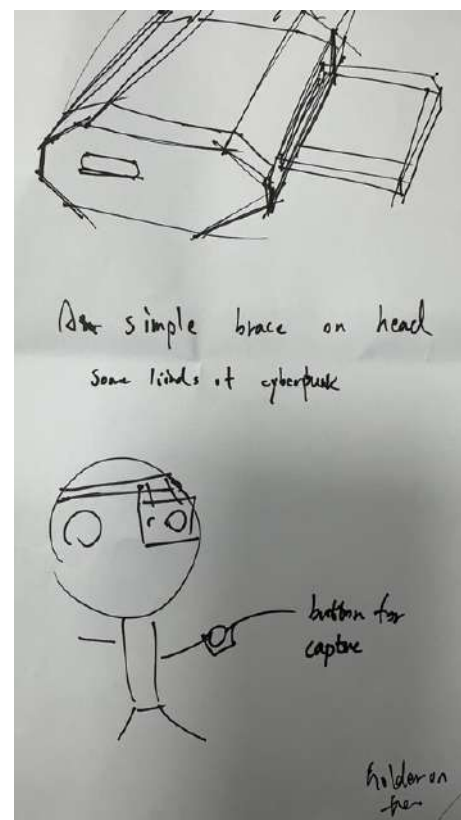 simple brace on head
some kinds of cyberpunk
button for
capture
holder on